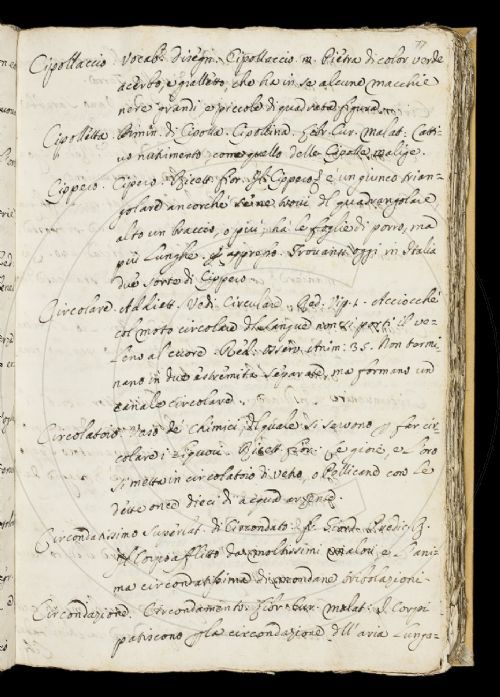 77
Cipollaccio. Vocab. Disegn. Cipollaccio. m. Pietra di color verde
acerbo, e gialletto, che ha in se alcune macchie
nere grandi, e piccole di quadrata figura.
Cipolletta. Dimin. di Cipolla. Cipollina. Libr. Cur. Malat. Catti-
vo nutrimento, come quello delle Cipolle malige.
Cippero. Cipero. Ricett. Fior. Il Cippero è un giunco trian-
golare ancorché se ne trovi del quadrangolare,
alto un braccio, o più, ha le foglie di porro, ma
più lunghe. E appresso. Trovansi oggi in Italia
due sorte di Cippero.
Circolare. Addiett. Vedi Circulare. Red. Vip. 1. Acciocchè
col moto circolare del sangue non si porti il ve-
leno al cuore. Red. Osserv. Anim. 35. Non termi-
nano in due estremità separate, ma formano un
canale circolare.
Circolatoio. Vaso de' Chimici, del quale si servono p far cir-
colare i liquori. Ricett. Fior. Le gioie, e l'oro
si metta in circolatoio di vetro, o Pellicano con le
dette once dieci di acqua arzente.
Circondatissimo. Superlat. di Circondato. Fr. Giord. Predic. R.
Il Corpo afflitto da moltissimi malori, e l'ani-
ma circondatissima di mondane tribolazioni.
Circondazione. Circondamento. Libr. Cur. Malat. I Corpi
patiscono p la circondazione dell'aria lungo-